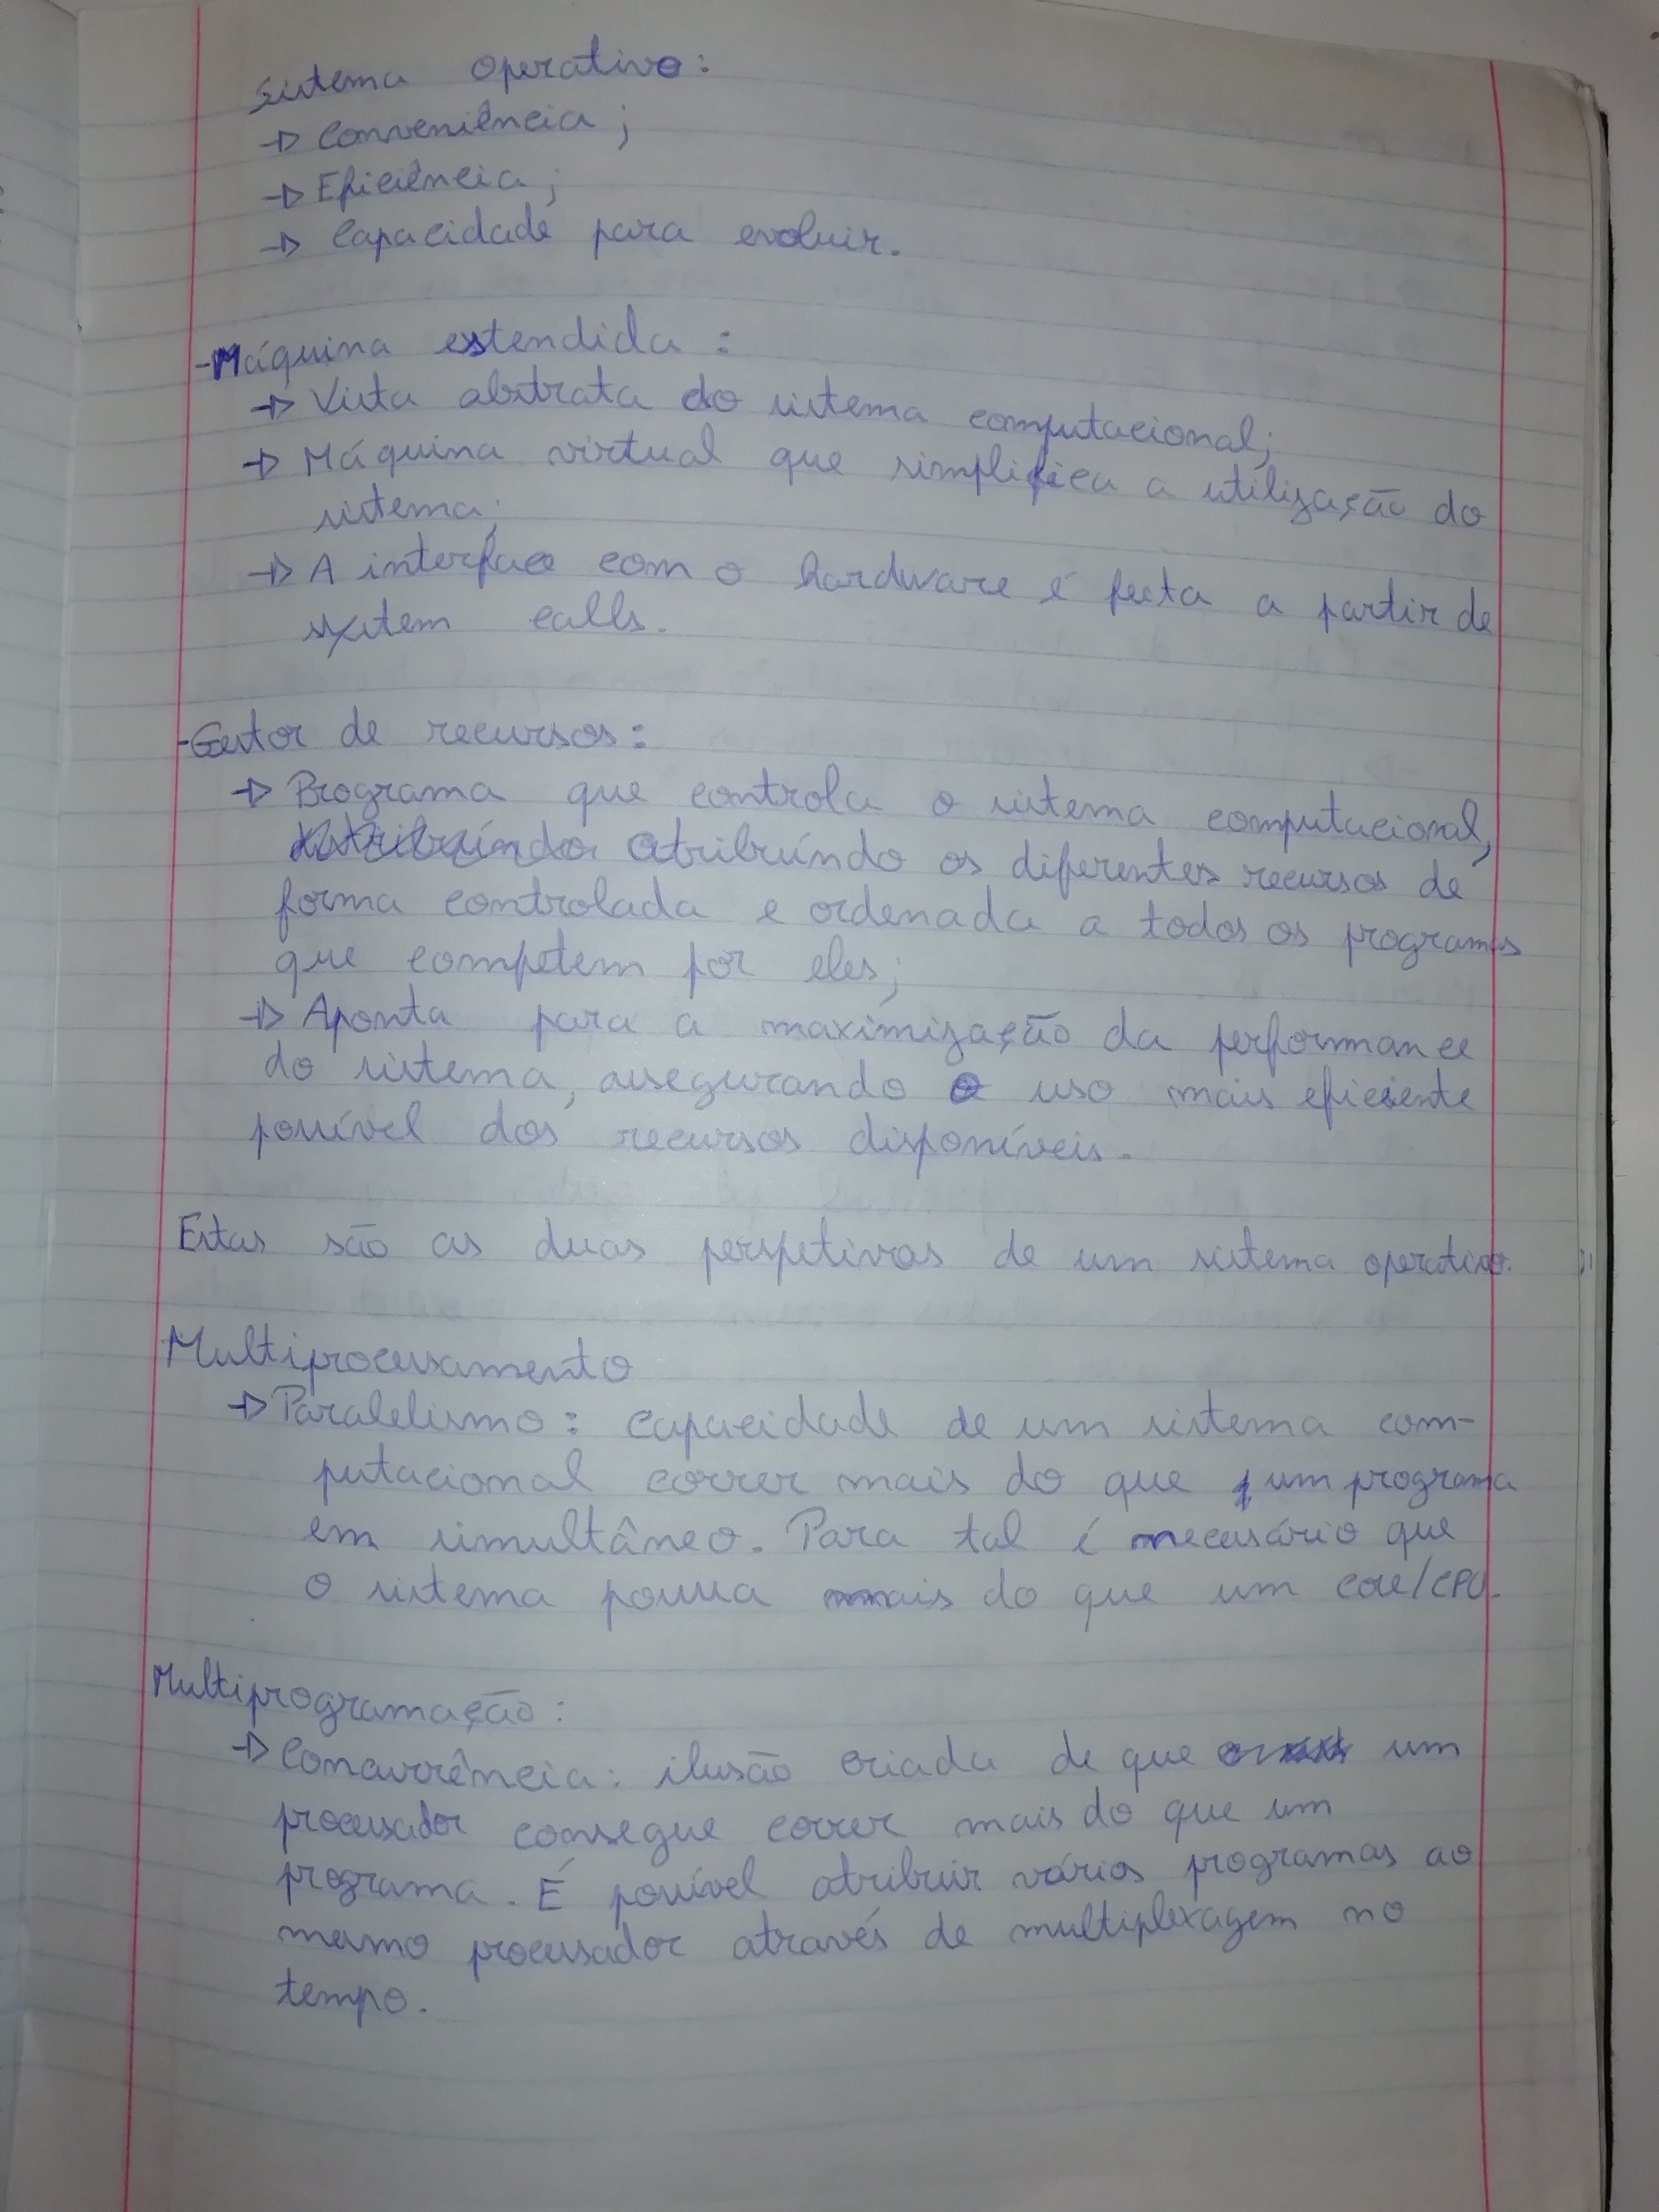 Sistema Operativo:
→ Conveniência;
→ Eficiência;
→ Capacidade para evoluir.
-Máquina estendida:
→ Vista abstrata do sistema computacional;
→ Máquina virtual que simplifica a utilização do
sistema;
→ A interface com o hardware é feita a partir de
system calls.
-Gestor de recursos:
→ Programa que controla o sistema computacional,
atribuíndo os diferentes recursos de
forma controlada e ordenada a todos os programas
que competem por eles;
→ Aponta para a maximização da performance
do sistema, assegurando o uso mais eficiente
possível dos recursos disponíveis.
Estas são as duas perspetivas de um sistema operativo.
Multiprocessamento
→ Paralelismo: capacidade de um sistema com-
putacional correr mais do que um programa
em simultâneo. Para tal é necessário que
o sistema possua mais do que um core/CPU.
Multiprogramação:
→ Concurrência: ilusão criada de que um
processador consegue correr mais do que um
programa. É possível atribuir vários programas ao
mesmo processador através de multiplexagem no
tempo.